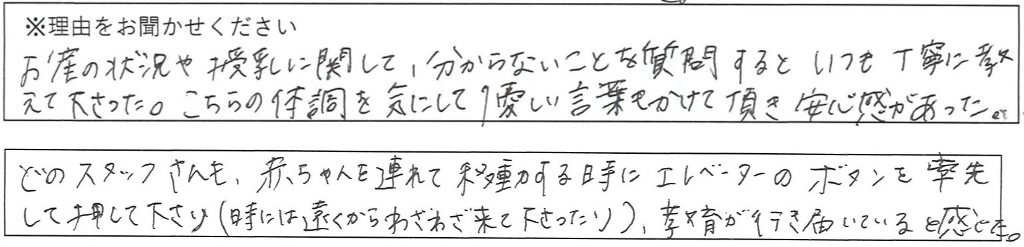 ※理由をお聞かせください
お産の状況や授乳に関して、分からないことを質問するといつも丁寧に教
えて下さった。こちらの体調を気にして優しい言葉をかけて頂き安心感があった。
どのスタッフさんも、赤ちゃんを連れて移動する時にエレベーターのボタンを率先
して押して下さり(時には遠くからわざわざ来て下さったり)、教育が行き届いていると感じた。